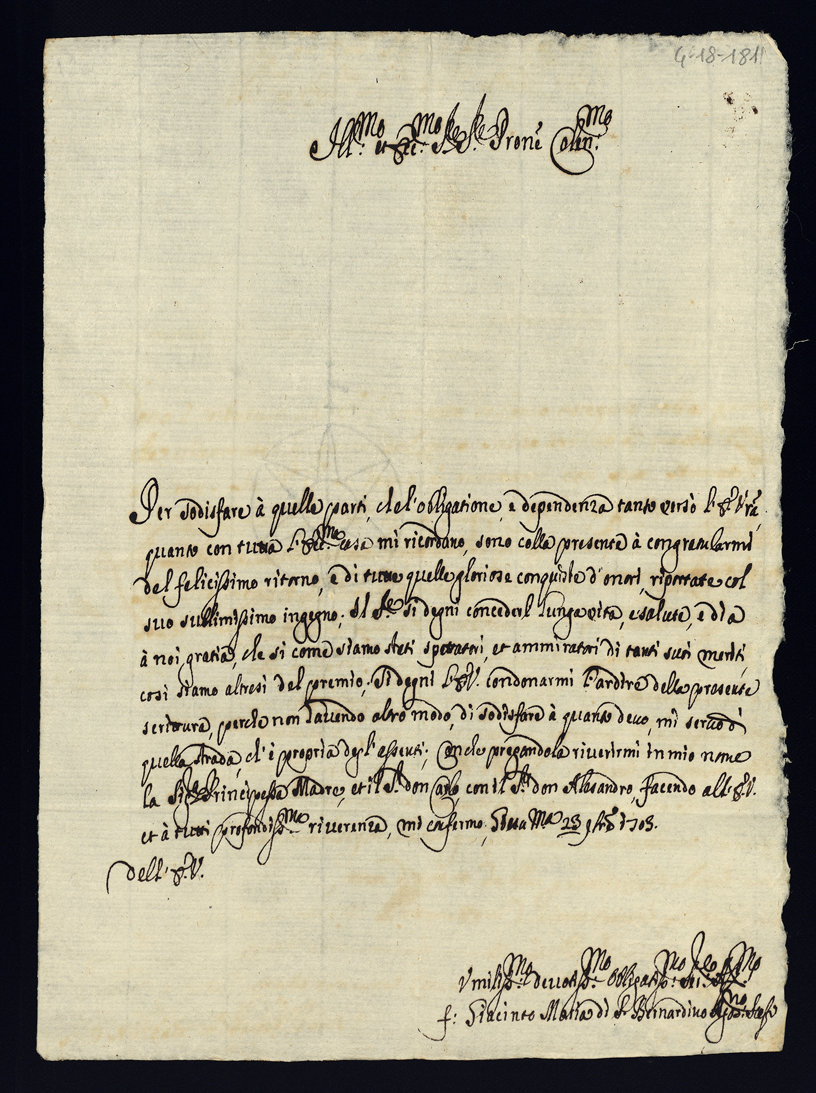 4-18-181
Ill.mo et Ecc.mo Sig.re Sig.re Prone Colen.mo
Per sodisfare à quelle parti, che l'obligatione, e dependenza tanto verso l'E. V'ra,
quanto con tutta l'Ecc.ma casa mi ricordano, sono colla presente à congratularmi
del felicissimo ritorno, e di tutte quelle gloriose conquiste d'onori, riportate col
suo sublimissimo ingegno; Il Sig.re si degni concederl' lunga vita, e salute, e dia
à noi gratia, che si come siamo stati spettatori, et ammiratori di tanti suoi meriti,
cosi siamo altresi del premio; Si degni l'E. V. condonarmi l'ardire della presente
scrittura, perche non havendo altro modo, di sodisfare à quanto devo, mi servo di
quella strada, ch'è propria degl'assenti; anche pregandola riverirmi in mio nome
la Sig.ra Principessa Madre, et il S.r don Carlo, con il S.r don Alesandro, facendo all'E. V.
et à tutti profondiss.ma riverenza, mi confermo; 23 9bre 1703.
dell'E. V.
Umiliss.mo devotiss.mo Obligatiss.mo
f: Giacinto Maria di S. Bernardino